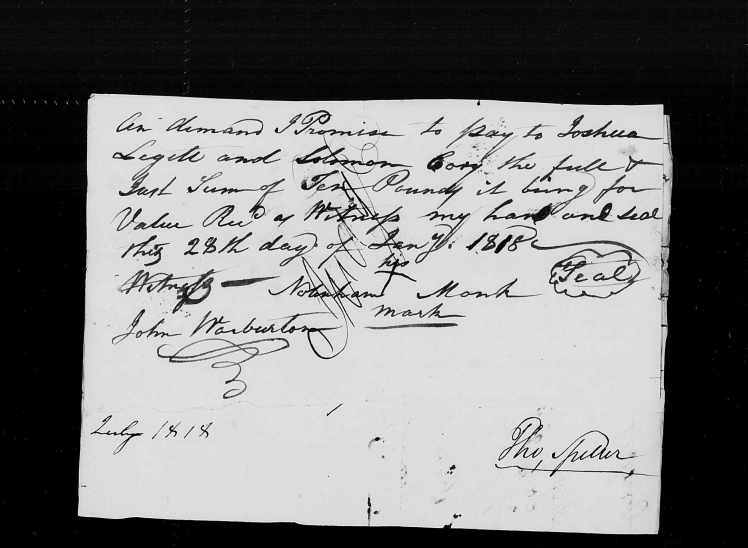 on demand I Promise to pay to Joshua
Legett and Solomon Cory the full &
Just Sum of Ten Pounds it being for
Value Recd as Witness my hand and seal
this 28th day of Jany: 1818
his
Witness — X Monk Seal
mark
John Warburton
July 1818
Tho,